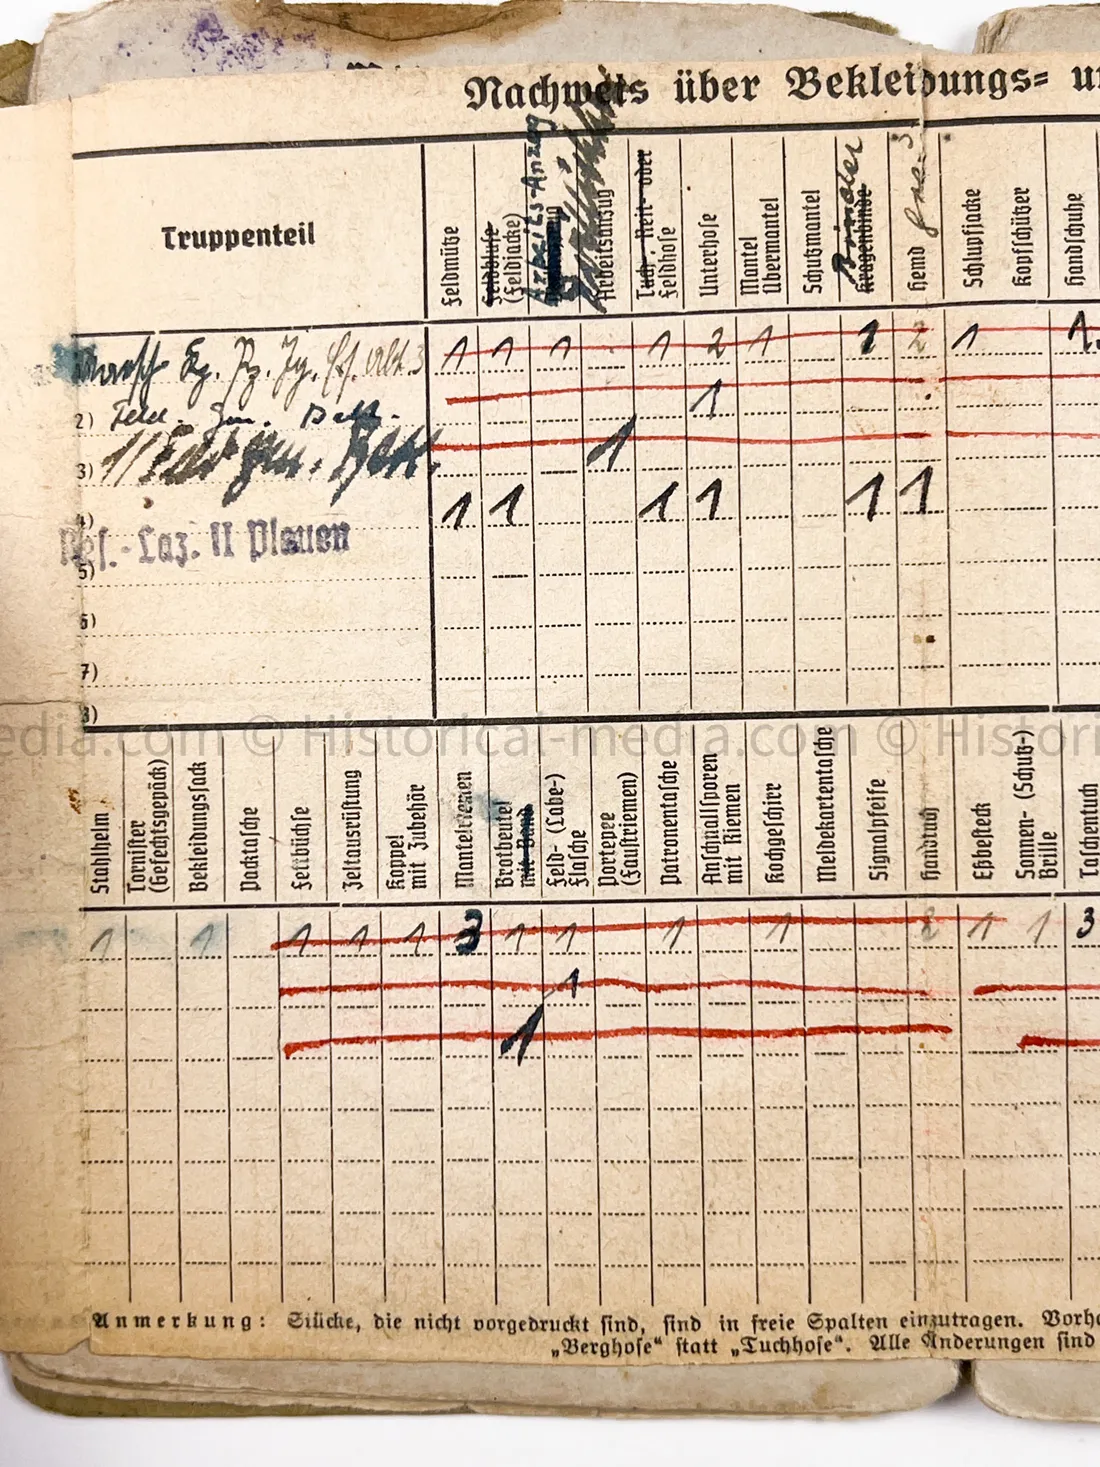 Nachweis über Bekleidungs=
Truppenteil
Feldmütze
Feldbluse
(Feldjacke)
Arbeits-Anzug
Arbeitsanzug
Tuch-, Reit- oder
Feldhose
Unterhose
Mantel
Übermantel
Schutzmantel
Binder
Kragenbinde
Hemd
Schlupfjacke
Kopfschützer
Handschuhe
Marsch Kp. Pz. Jg. Ers. Abt. 3
1 1 1 1 2 1 1 2 1 1.
2) Feld. Gen. Batl.
1
3) 1/Feldgen. Batl.
1
4)
1 1 1 1 1 1
Res.-Laz. II Plauen
5)
6)
7)
8)
© Historical-media.com ©
Stahlhelm
Tornister
(Gefechtsgepäck)
Bekleidungssack
Packtasche
Fettbüchse
Zeltausrüstung
Koppel
mit Zubehör
Mantelriemen
Brotbeutel
mit Band
Feld- (Labe-)
Flasche
Portepee
(Faustriemen)
Patronentasche
Anschnallsporen
mit Riemen
Kochgeschirr
Meldekartentasche
Signalpfeife
Handtuch
Eßbesteck
Sonnen- (Schutz-)
Brille
Taschentuch
1 1 1 1 1 3 1 1 1 1 2 1 1 3
1
1
Anmerkung: Stücke, die nicht vorgedruckt sind, sind in freie Spalten einzutragen.
„Berghose“ statt „Tuchhose“. Alle Änderungen sind